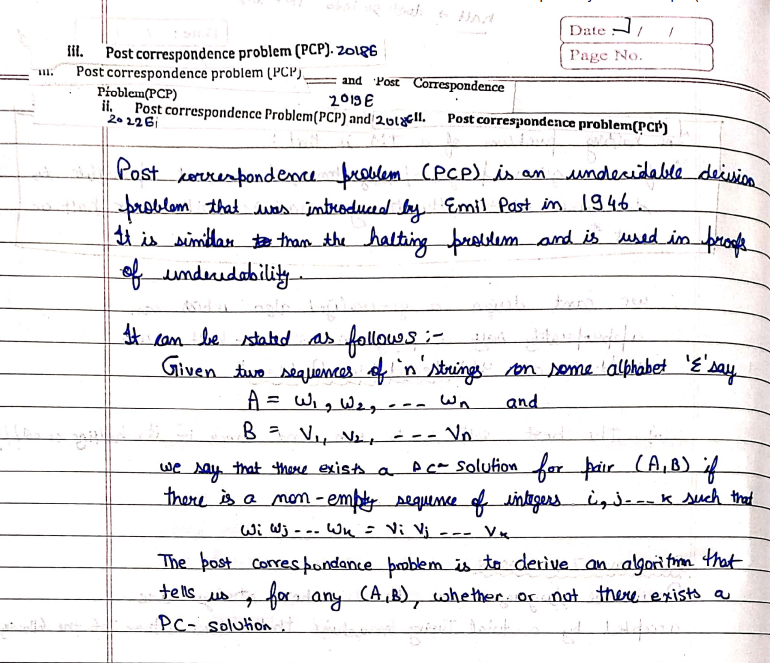 Date / /
Page No.
iii. Post correspondence problem (PCP). 2018E
iii. Post correspondence problem (PCP)
and Post Correspondence
Problem(PCP) 2019E
ii. Post correspondence Problem(PCP) and 2018E II. Post correspondence problem(PCP)
2022E
Post correspondence problem (PCP) is an undecidable decision
problem that was introduced by Emil Post in 1946.
It is similar than the halting problem and is used in proofs
of undecidability.
It can be stated as follows :-
Given two sequences of 'n' strings on some alphabet 'Σ' say
A = w1, w2, --- wn and
B = V1, V2, --- Vn
we say that there exists a PC- solution for pair (A,B) if
there is a non-empty sequence of integers i, j--- k such that
wi wj --- wk = vi vj --- vk
The post correspondance problem is to derive an algorithm that
tells us, for any (A,B), whether or not there exists a
PC- solution.